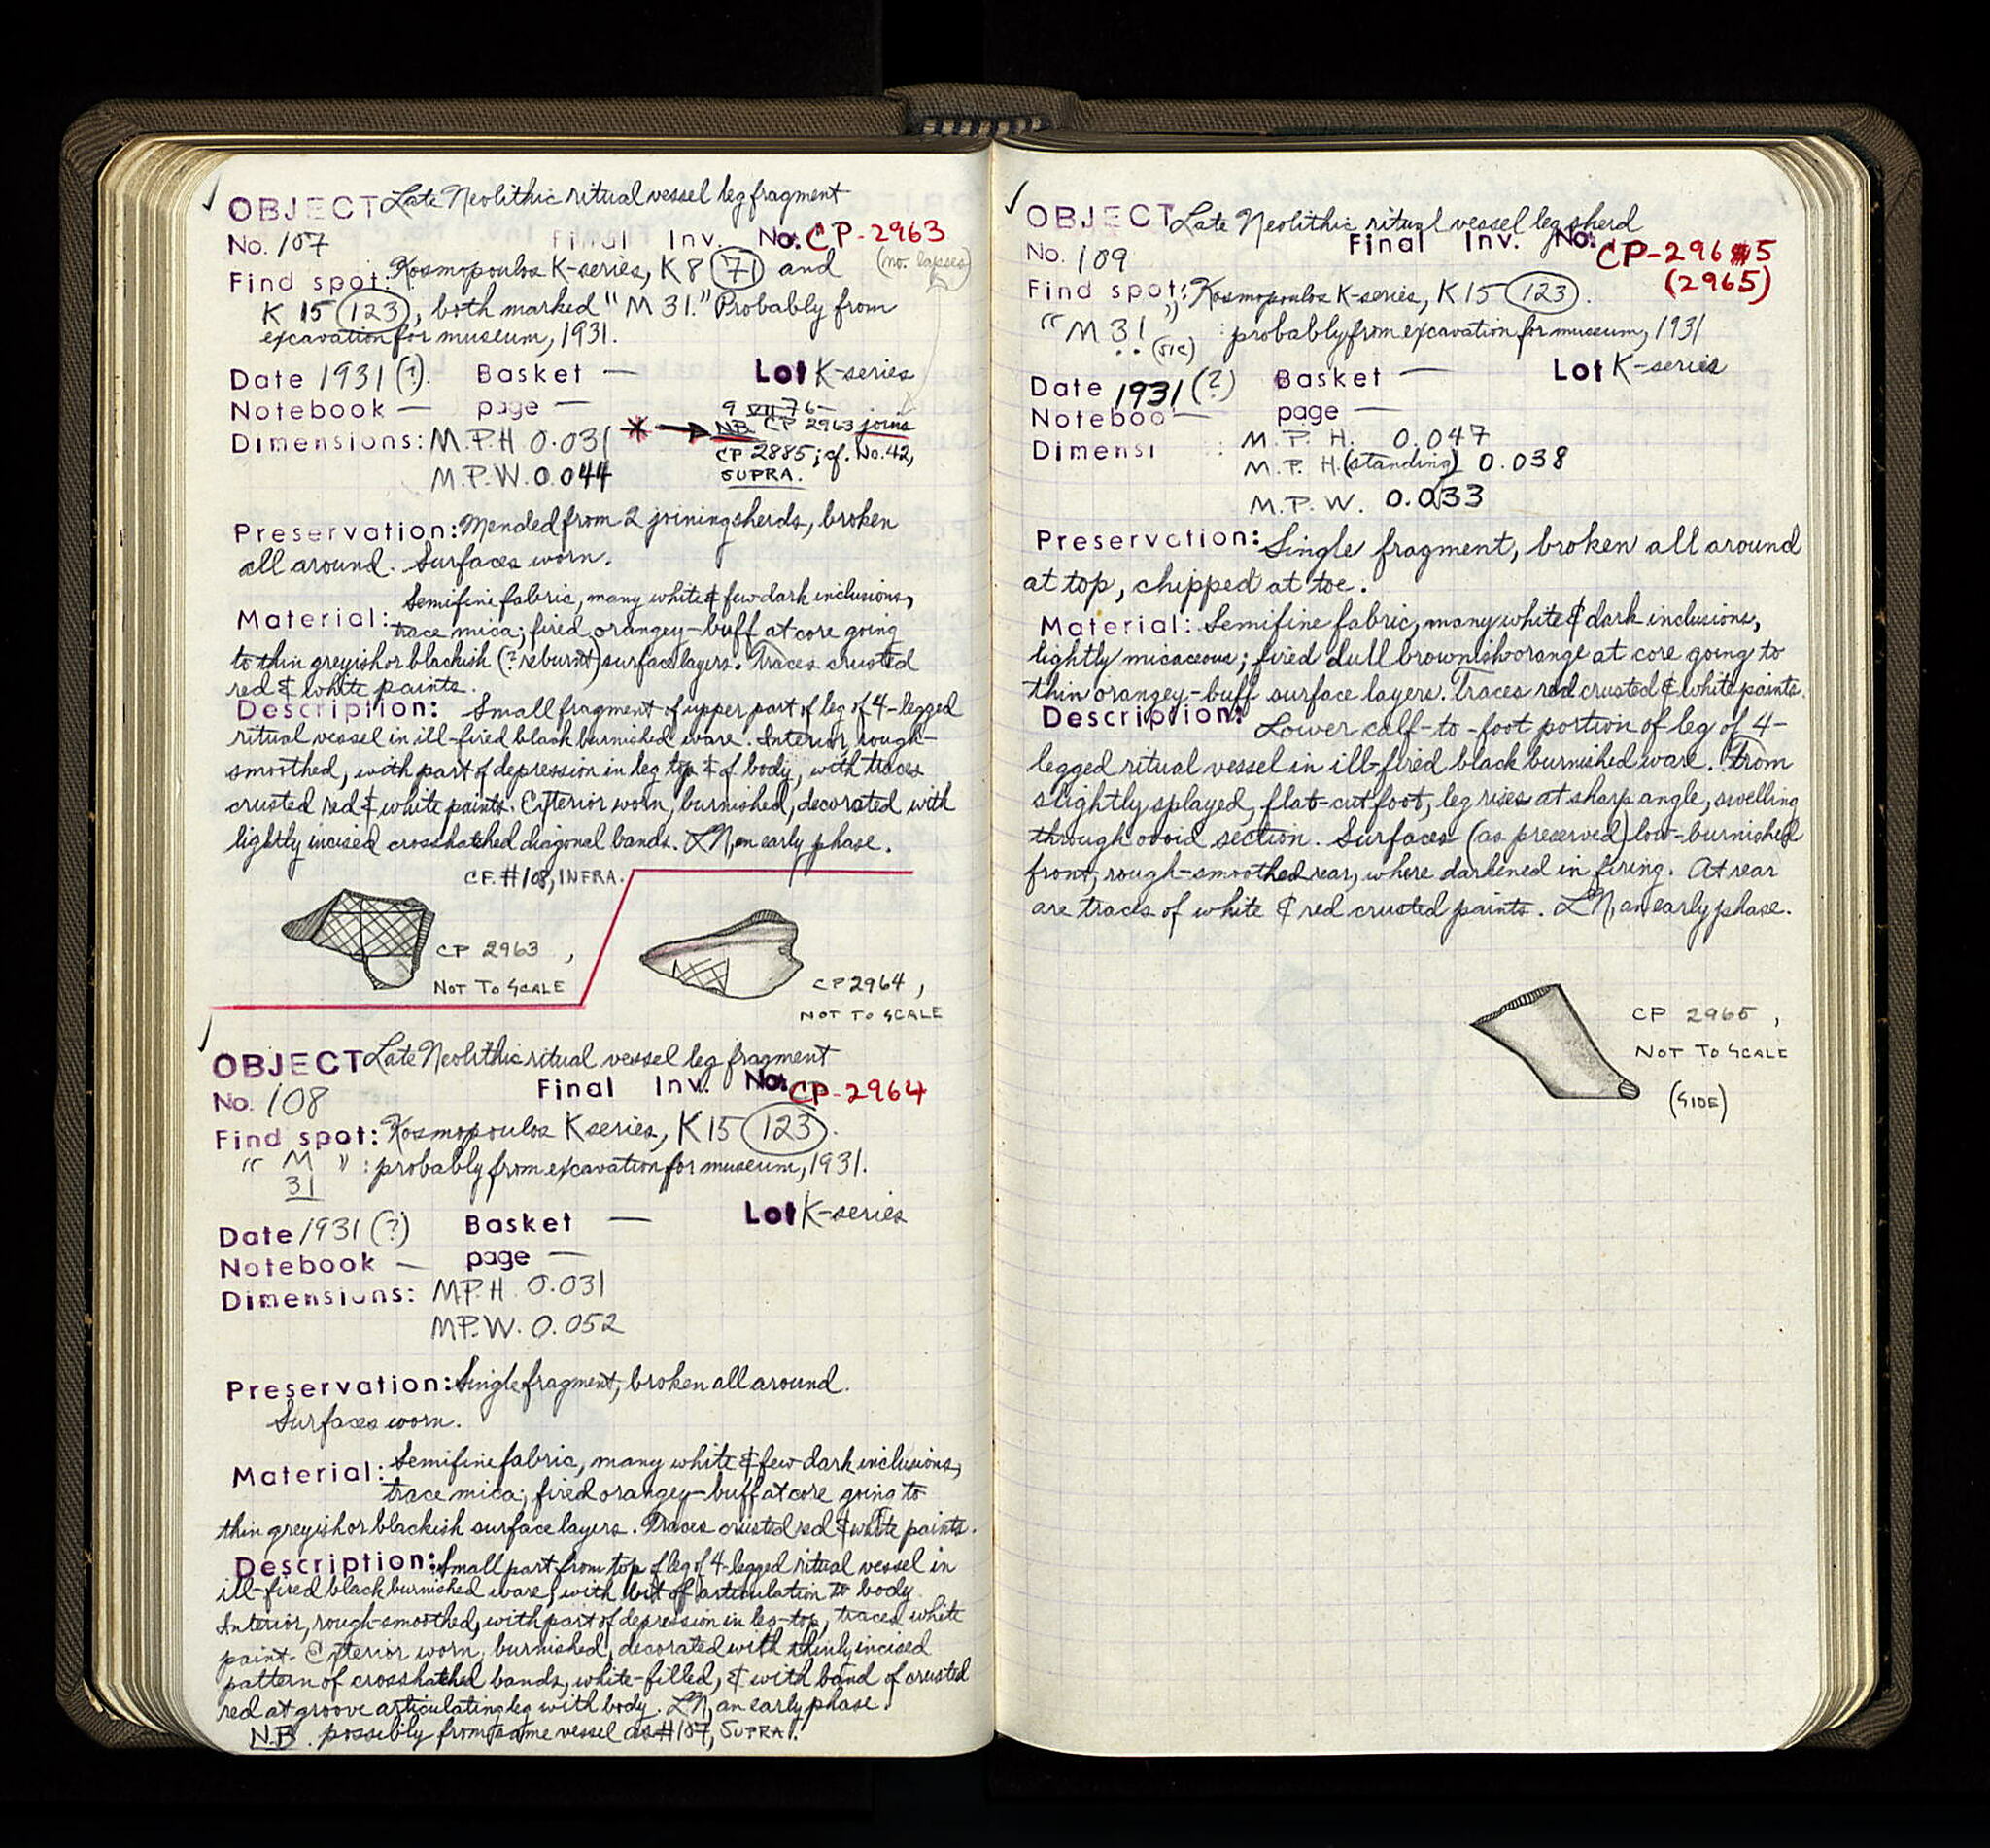 ✓ OBJECT Late Neolithic ritual vessel leg fragment
No. 107 Final Inv. No. CP-2963
(no. lapses)
Find spot: Kosmopoulos K-series, K 8 (71) and
K 15 (123), both marked "M 31." Probably from
excavation for museum, 1931.
Date 1931 (?). Basket — Lot K-series
Notebook — page —
Dimensions: M.P.H 0.031
M.P.W. 0.044
* → 9 VII 76 –
NB. CP 2963 joins
CP 2885; cf. No. 42,
SUPRA.
Preservation: Mended from 2 joining sherds, broken
all around. Surfaces worn.
Material: Semifine fabric, many white & few dark inclusions,
trace mica; fired orangey-buff at core going
to thin greyish or blackish (? reburnt) surface layers. Traces crusted
red & white paints.
Description: Small fragment of upper part of leg of 4-legged
ritual vessel in ill-fired black burnished ware. Interior rough-
smoothed, with part of depression in leg top & of body, with traces
crusted red & white paints. Exterior worn, burnished, decorated with
lightly incised crosshatched diagonal bands. LN, an early phase.
CF. #108, INFRA.
CP 2963,
NOT TO SCALE
CP 2964,
NOT TO SCALE
✓ OBJECT Late Neolithic ritual vessel leg fragment
No. 108 Final Inv. No. CP-2964
Find spot: Kosmopoulos K series, K 15 (123).
" M " : probably from excavation for museum, 1931.
31
Date 1931 (?) Basket — Lot K-series
Notebook — page —
Dimensions: M.P.H. 0.031
M.P.W. 0.052
Preservation: Single fragment, broken all around.
Surfaces worn.
Material: Semifine fabric, many white & few dark inclusions,
trace mica; fired orangey-buff at core going to
thin greyish or blackish surface layers. Traces crusted red & white paints.
Description: Small part from top of leg of 4-legged ritual vessel in
ill-fired black burnished ware, with bit of articulation to body.
Interior, rough-smoothed, with part of depression in leg-top, traces white
paint. Exterior worn, burnished, decorated with thinly incised
pattern of crosshatched bands, white-filled, & with band of crusted
red at groove articulating leg with body. LN, an early phase.
N.B. possibly from same vessel as #107, SUPRA.
✓ OBJECT Late Neolithic ritual vessel leg sherd
No. 109 Final Inv. No. CP-2965
(2965)
Find spot: Kosmopoulos K-series, K 15 (123).
"M 31" (sic) : probably from excavation for museum, 1931
Date 1931 (?) Basket — Lot K-series
Noteboo — page —
Dimensi : M.P. H. 0.047
M.P. H. (standing) 0.038
M.P. W. 0.033
Preservation: Single fragment, broken all around
at top, chipped at toe.
Material: Semifine fabric, many white & dark inclusions,
lightly micaceous; fired dull brownish orange at core going to
thin orangey-buff surface layers. Traces red crusted & white paints.
Description: Lower calf-to-foot portion of leg of 4-
legged ritual vessel in ill-fired black burnished ware. From
slightly splayed, flat-cut foot, leg rises at sharp angle, swelling
through ovoid section. Surfaces (as preserved) low-burnished
front, rough-smoothed rear, where darkened in firing. At rear
are traces of white & red crusted paints. LN, an early phase.
CP 2965,
NOT TO SCALE
(SIDE)